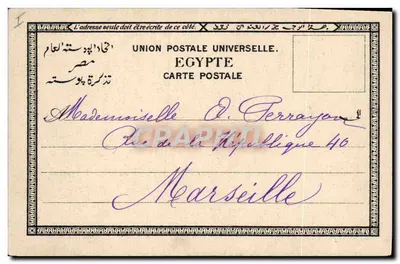 I
L'adresse seule doit être écrite de ce côté.
UNION POSTALE UNIVERSELLE.
EGYPTE
CARTE POSTALE
اتحاد البوسته العام
مصر
تذكرة بوسته
Mademoiselle A. Ferrayon
Rue de la République 40
Marseille